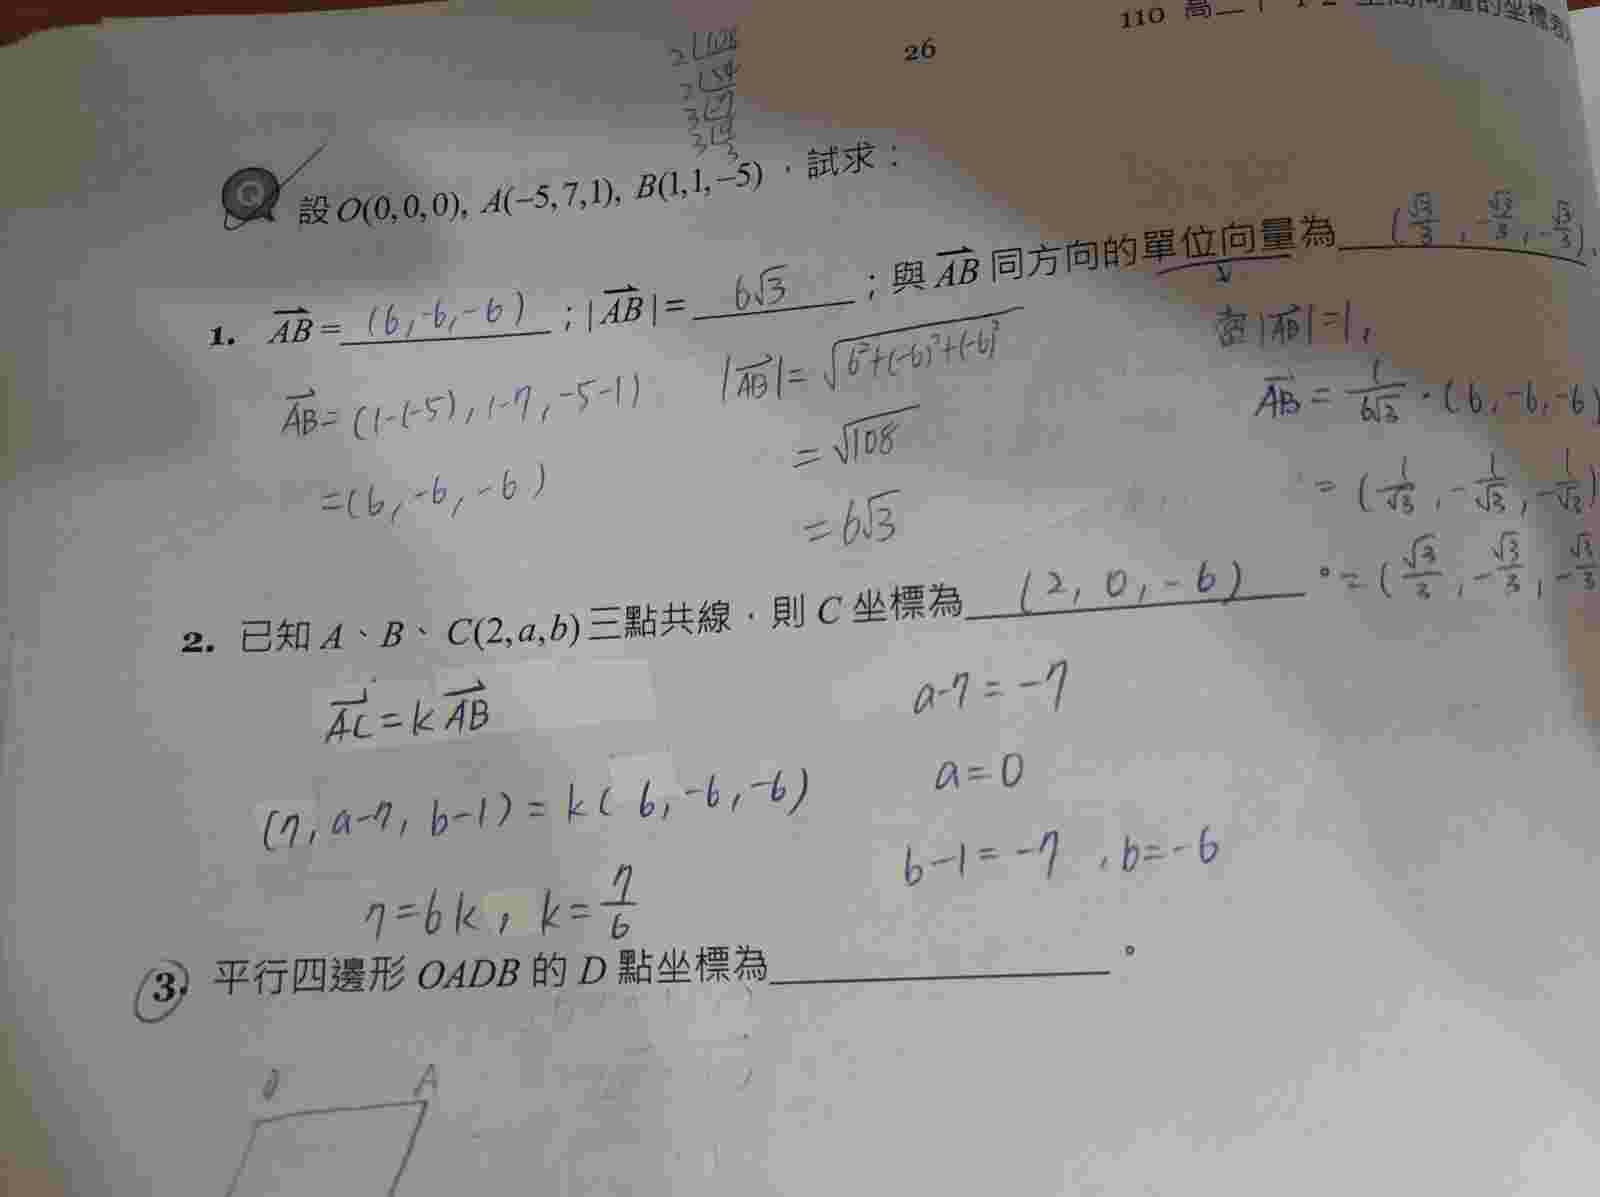 110 高二下 1-2 空間向量的坐標表
26
2 108
2 54
3 27
3 9
3
Q 設 O(0,0,0), A(−5,7,1), B(1,1,−5)，試求：
1. AB = (6,-6,-6) ; |AB| = 6√3 ; 與 AB 同方向的單位向量為 (√3/3, -√3/3, -√3/3).
AB = (1-(-5), 1-7, -5-1)
= (6, -6, -6)
|AB| = √6²+(-6)²+(-6)²
= √108
= 6√3
|AB| = 1,
AB = 1/6√3 · (6, -6, -6)
= (1/√3, -1/√3, -1/√3)
= (√3/3, -√3/3, -√3/3
2. 已知 A、B、C(2,a,b) 三點共線，則 C 坐標為 (2, 0, -6) 。
AC = k AB
(7, a-7, b-1) = k(6, -6, -6)
7 = 6k, k = 7/6
a-7 = -7
a = 0
b-1 = -7, b = -6
3. 平行四邊形 OADB 的 D 點坐標為 。
O A